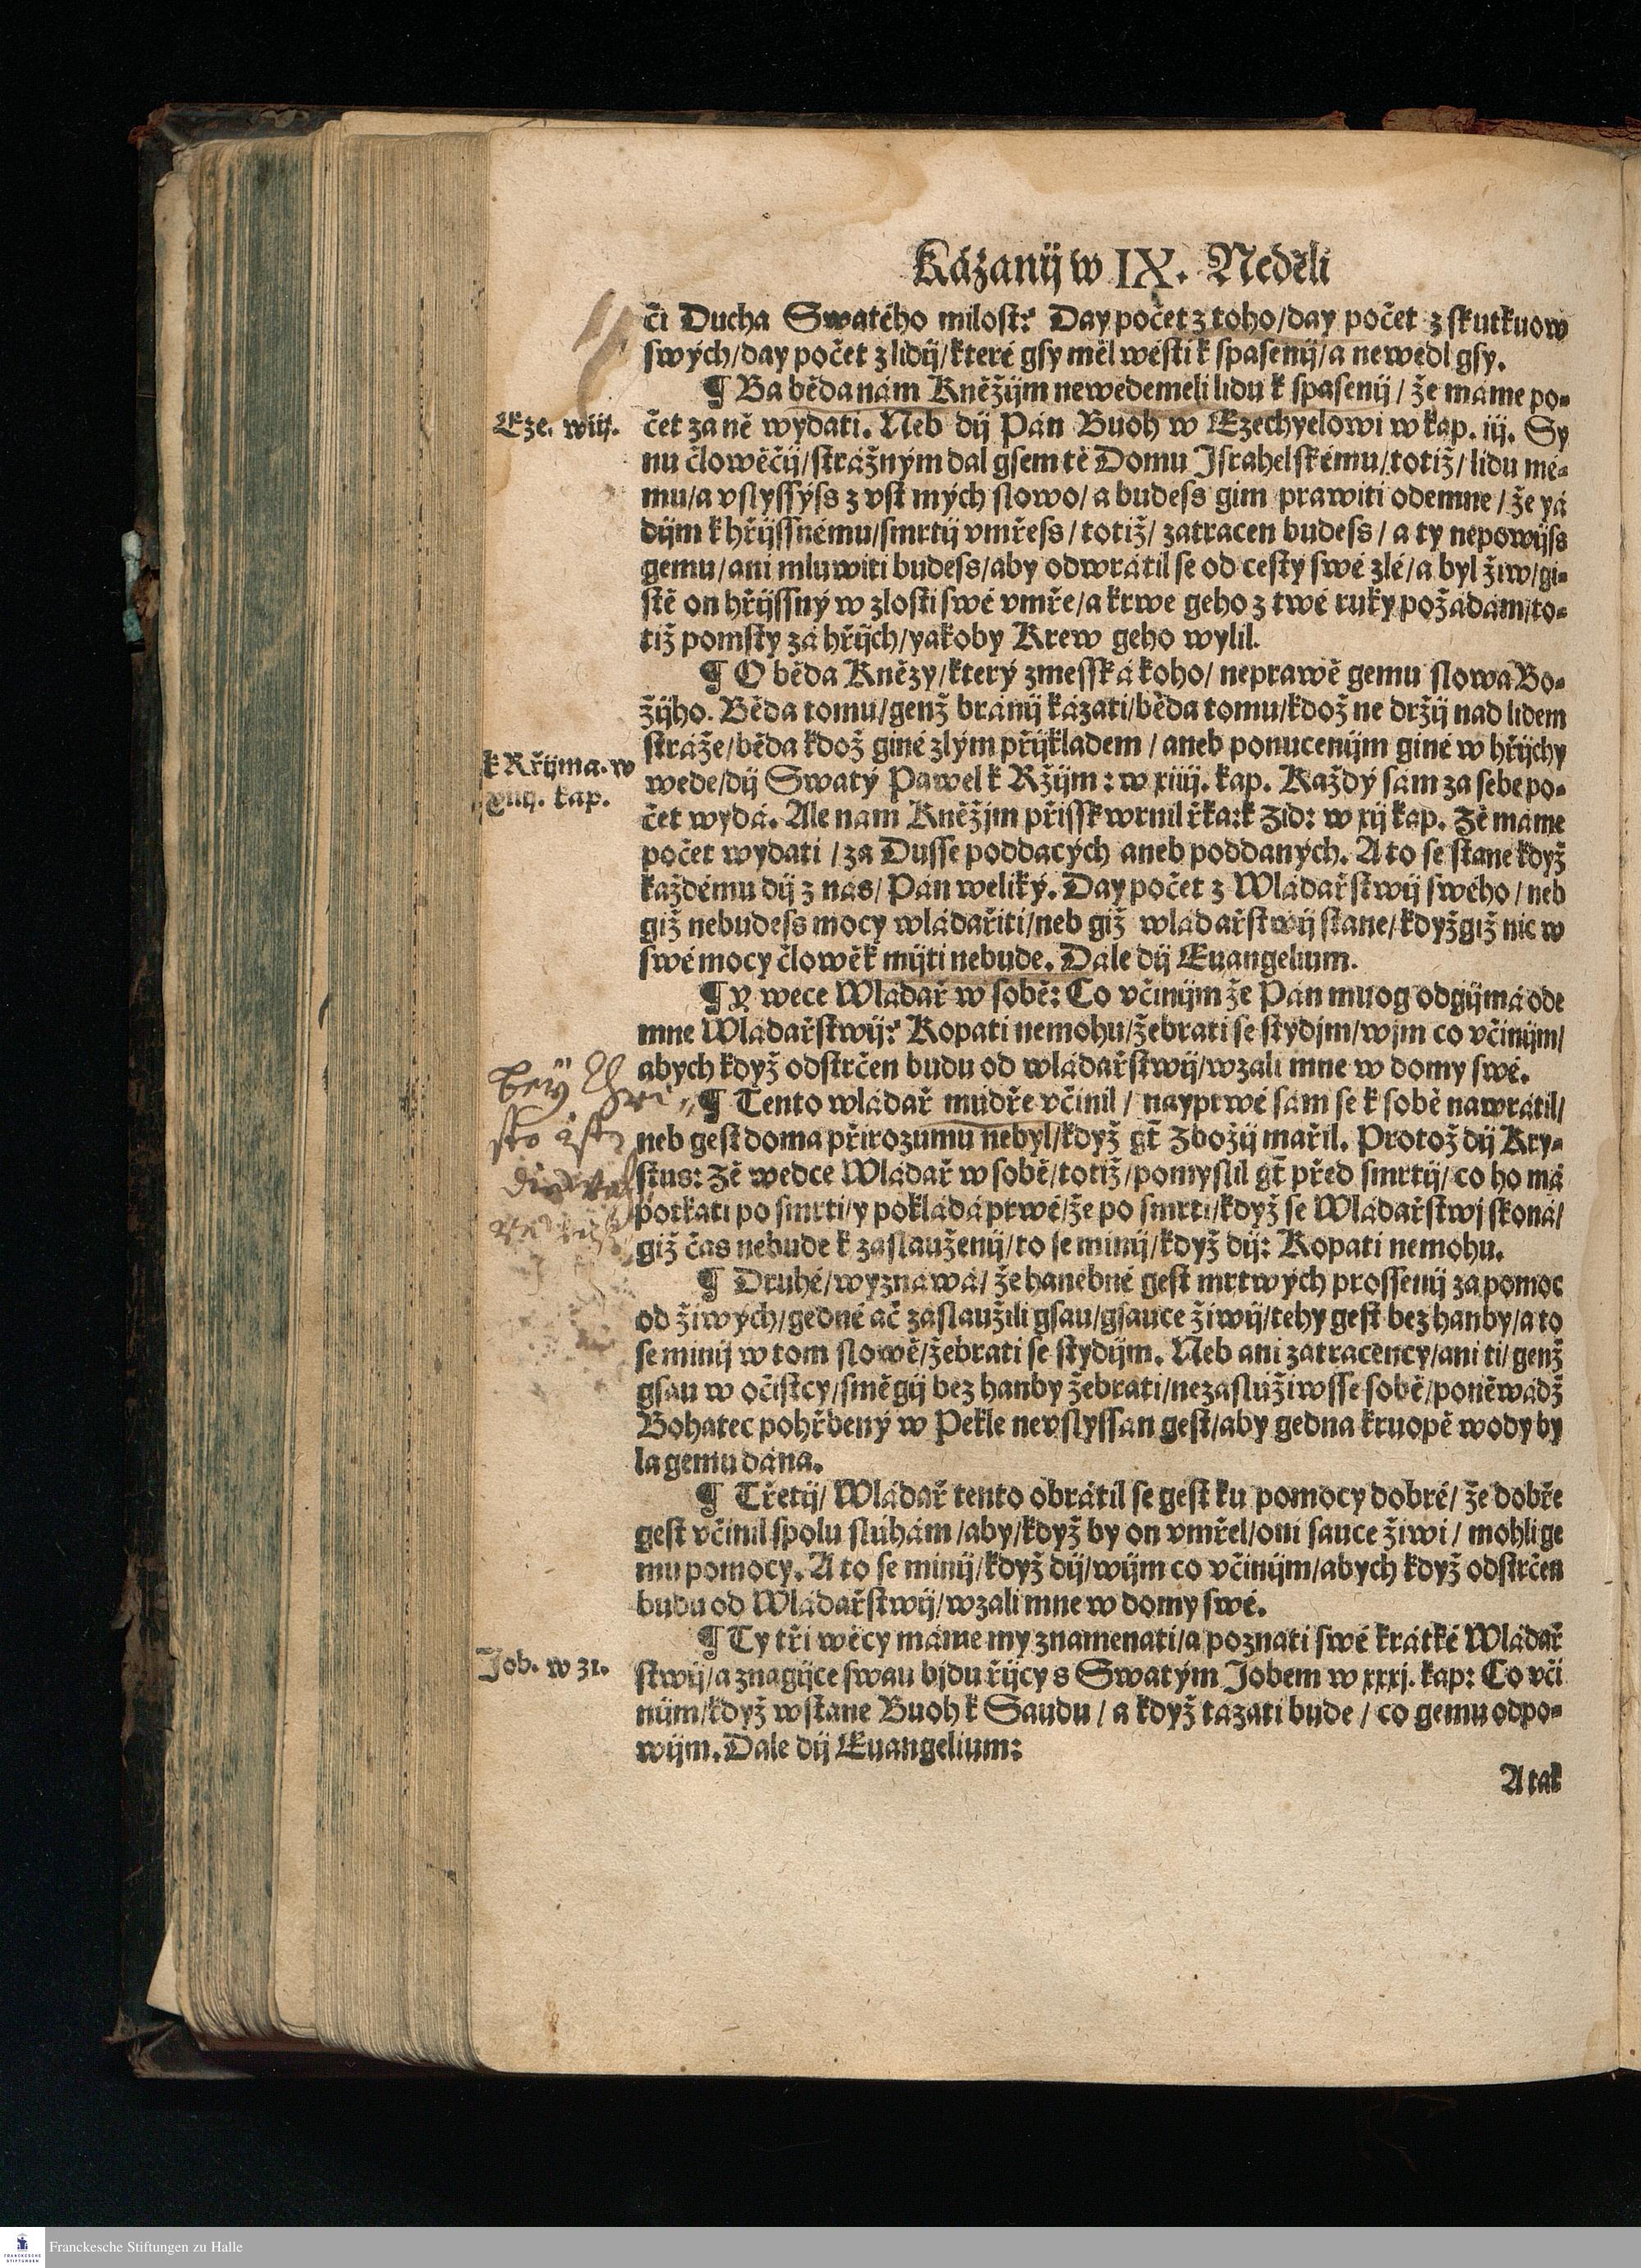 Kázanij w IX. Neděli
či Ducha Swatého milost? Day počet z toho/day počet z skutkuow
swých/day počet z lidij/které gsy měl wésti k spasenij/a newedl gsy.
¶ Ba běda nám Kněžijm newedemeli lidu k spasenij / že máme po-
Eze. w iij.
čet za ně wydati. Neb dij Pán Buoh w Ezechyelowi w kap. iij. Sy
nu člowěčij/strážným dal gsem tě Domu Israhelskému/totiž/lidu mé-
mu/a vslyssýss z vst mých slowo/a budess gim prawiti odemne/že yá
dijm k hřijssnému/smrtij vmřess/totiž/zatracen budess/a ty nepowijss
gemu/ani mluwiti budess/aby odwrátil se od cesty swé zlé/a byl žiw/gi-
stě on hřijssný w zlosti swé vmře/a krwe geho z twé ruky požádám/to-
tiž pomsty zá hřijch/yakoby Krew geho wylil.
¶ O běda Knězy/který zmesská koho/neprawě gemu slowa Bo-
žijho. Běda tomu/genž bránij kázati/běda tomu/kdož ne držij nad lidem
stráže/běda kdož giné zlým přijkladem/aneb ponucenijm giné w hřijchy
k Rřijma. w
xiiij. kap.
wede/dij Swatý Pawel k Ržijm: w xiiij. kap. Každý sám za sebe po-
čet wydá. Ale nam Kněžjm přisskwrnil řka: k Zid: w xij kap. Zě máme
počet wydati /za Dusse poddacých aneb poddaných. A to se stane když
každému dij z nás/Pán weliký. Day počet z Wládařstwij swého/neb
giž nebudess mocy wládařiti/neb giž wládařstwij stane/když giž nic w
swé mocy člowěk mijti nebude. Dále dij Euangelium.
¶ Y wece Wládař w sobě: Co včinijm že Pán muog odgijmá ode
mne Wládařstwij? Kopati nemohu/žebrati se stydjm/wjm co včinijm/
abych když odstrčen budu od wládařstwij/wzali mne w domy swé.
¶ Tento wládař múdře včinil/nayprwé sám se k sobě nawrátil/
neb gest doma při rozumu nebyl/když gt̃ Zbožij mařil. Protož dij Kry-
stus: Zě wedce Wládař w sobě/totiž/pomyslil gt̃ před smrtij/co ho má
potkati po smrti/y pokládá prwé/že po smrti/když se Wládařstwj skoná/
giž čas nebude k zaslauženij/to se mijnij/když dij: Kopati nemohu.
¶ Druhé/wyznáwá/že hanebné gest mrtwých prossenij za pomoc
od žiwých/gedné ač zaslaužili gsau/gsauce žiwij/tehy gest bez hanby/a to
se minij w tom slowě/žebrati se stydijm. Neb ani zatracency/ani ti/genž
gsau w očistcy/smě gij bez hanby žebrati/nezaslúžiwsse sobě/poněwádž
Bohatec pohřbený w Pekle nevslyssan gest/aby gedna kruopě wody by
la gemu dána.
¶ Třetij/Wládař tento obrátil se gest ku pomocy dobré/že dobře
gest včinil spolu slúhám/aby/když by on vmřel/oni sauce žiwi/mohli ge
mu pomocy. A to se minij/když dij/wijm co včinijm/abych když odstrčen
budu od Wládařstwij/wzali mne w domy swé.
¶ Ty tři wěcy máme my znamenati/a poznati swé krátké Wládař
Job. w 31.
stwij/a znagijce swau bjdu řijcy s Swatým Jobem w xxxj. kap: Co vči
nijm/když wstane Buoh k Saudu/a když tázati bude/co gemu odpo-
wijm. Dále dij Euangelium:
A tak
Franckesche Stiftungen zu Halle